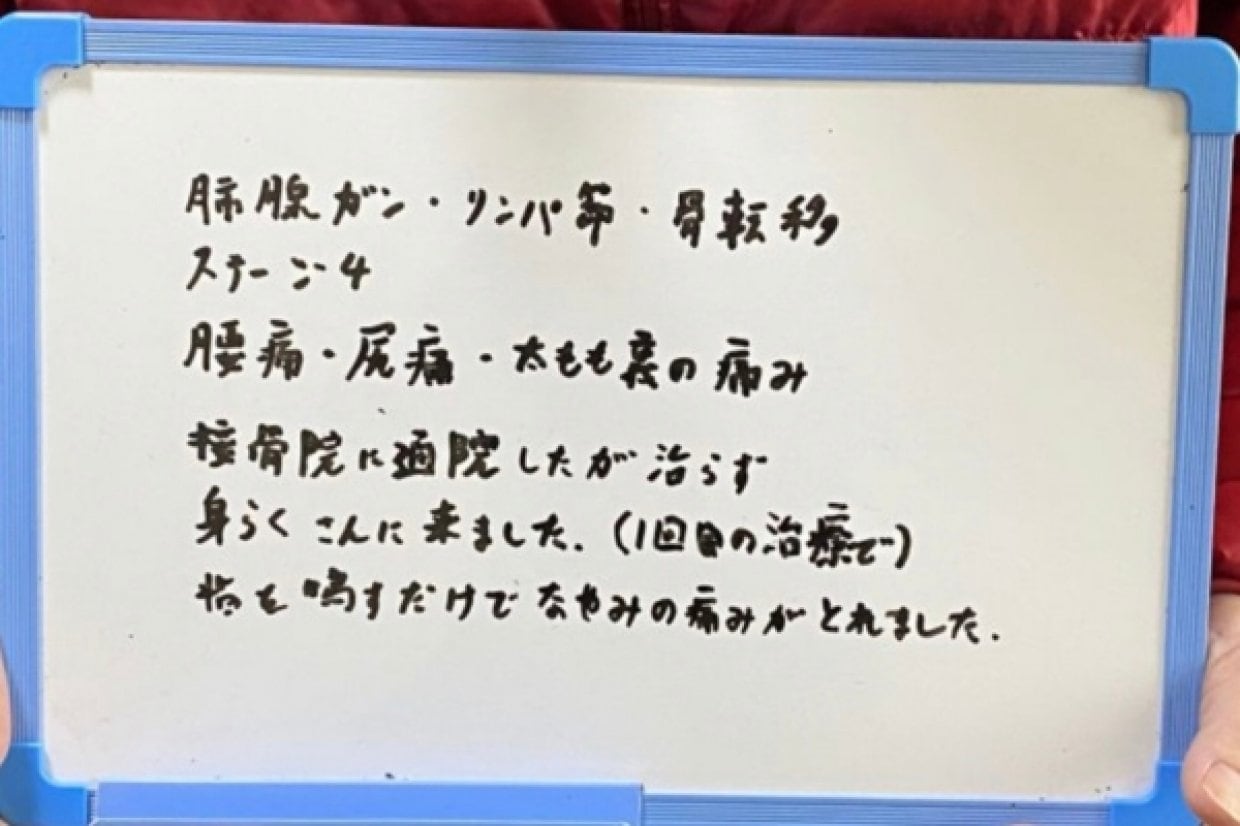 肺腺ガン・リンパ節・骨転移
ステージ4
腰痛・尻痛・太もも裏の痛み
接骨院に通院したが治らず
身らくこんに来ました.(1回目の治療で)
指を鳴すだけでなやみの痛みがとれました.